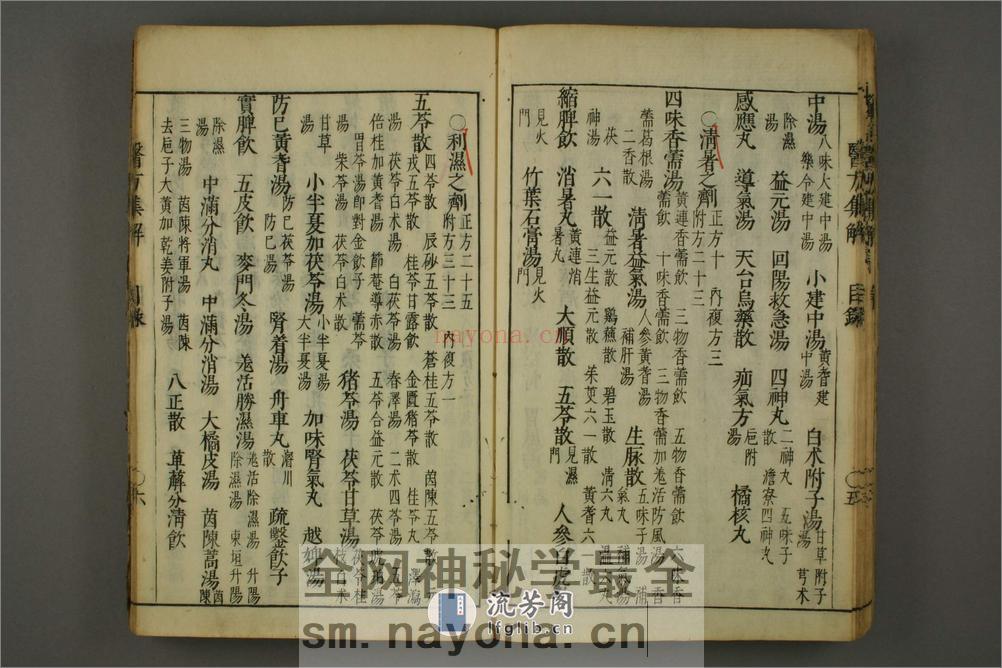 中湯 八味大建中湯 樂令建中湯 小建中湯 黃耆建中湯 白朮附子湯 甘草附子 芎朮
除濕湯 益元湯 回陽救急湯 四神丸 二神丸 五味子散 澹寮四神丸
感應丸 導氣湯 天台烏藥散 疝氣方 梔附湯 橘核丸
○清暑之劑 正方十 附方二十三 內複方三
四味香薷湯 黃連香薷飲 三物香薷飲 五物香薷飲 六味香薷飲 十味香薷飲 三物香薷加羌活防風湯
薷葛根湯 二香散 清暑益氣湯 人參黃耆湯 補肝湯 生脉散 五味子湯
茯神湯 六一散 益元散 雞蘇散 碧玉散 清六丸 三生益元散 茱萸六一散 黃耆六一散
縮脾飲 消暑丸 黃連消 大順散 五苓散 見濕門 人參白虎
見火門 竹葉石膏湯 見火門
醫方集解 目錄 五
○利濕之劑 正方二十五 附方三十三 內複方一
五苓散 四苓散 辰砂五苓散 蒼桂五苓散 茵陳五苓散 桂苓甘露飲 金匱豬苓散
戊五苓散 茯苓白朮湯 白茯苓湯 春澤湯 二朮四苓湯 五苓
倍桂加黃耆湯 節菴導赤散 五苓合益元散 茯苓
胃苓湯即對金飲子 薷苓
柴苓湯 茯苓白朮散 豬苓湯 茯苓甘草湯
甘草 小半夏加茯苓湯 小半夏湯 大半夏湯 加味腎氣丸 越婢湯
防巳黃耆湯 防巳茯苓湯 防巳湯 腎着湯 舟車丸 濬川散 疏鑿飲子
實脾飲 五皮飲 麥門冬湯 羌活勝濕湯 羌活除濕湯 升陽除濕湯 東垣升陽
除濕湯 中滿分消丸 中滿分消湯 大橘皮湯 茵陳蒿湯 茵陳
三物湯 茵陳將軍湯 茵陳
去梔子大黃加乾姜附子湯 八正散 萆薢分清飲
醫方集解 目錄 六
nayona.com
全网神秘学最全
流芳阁
lfglib.cn
sm.nayona.cn